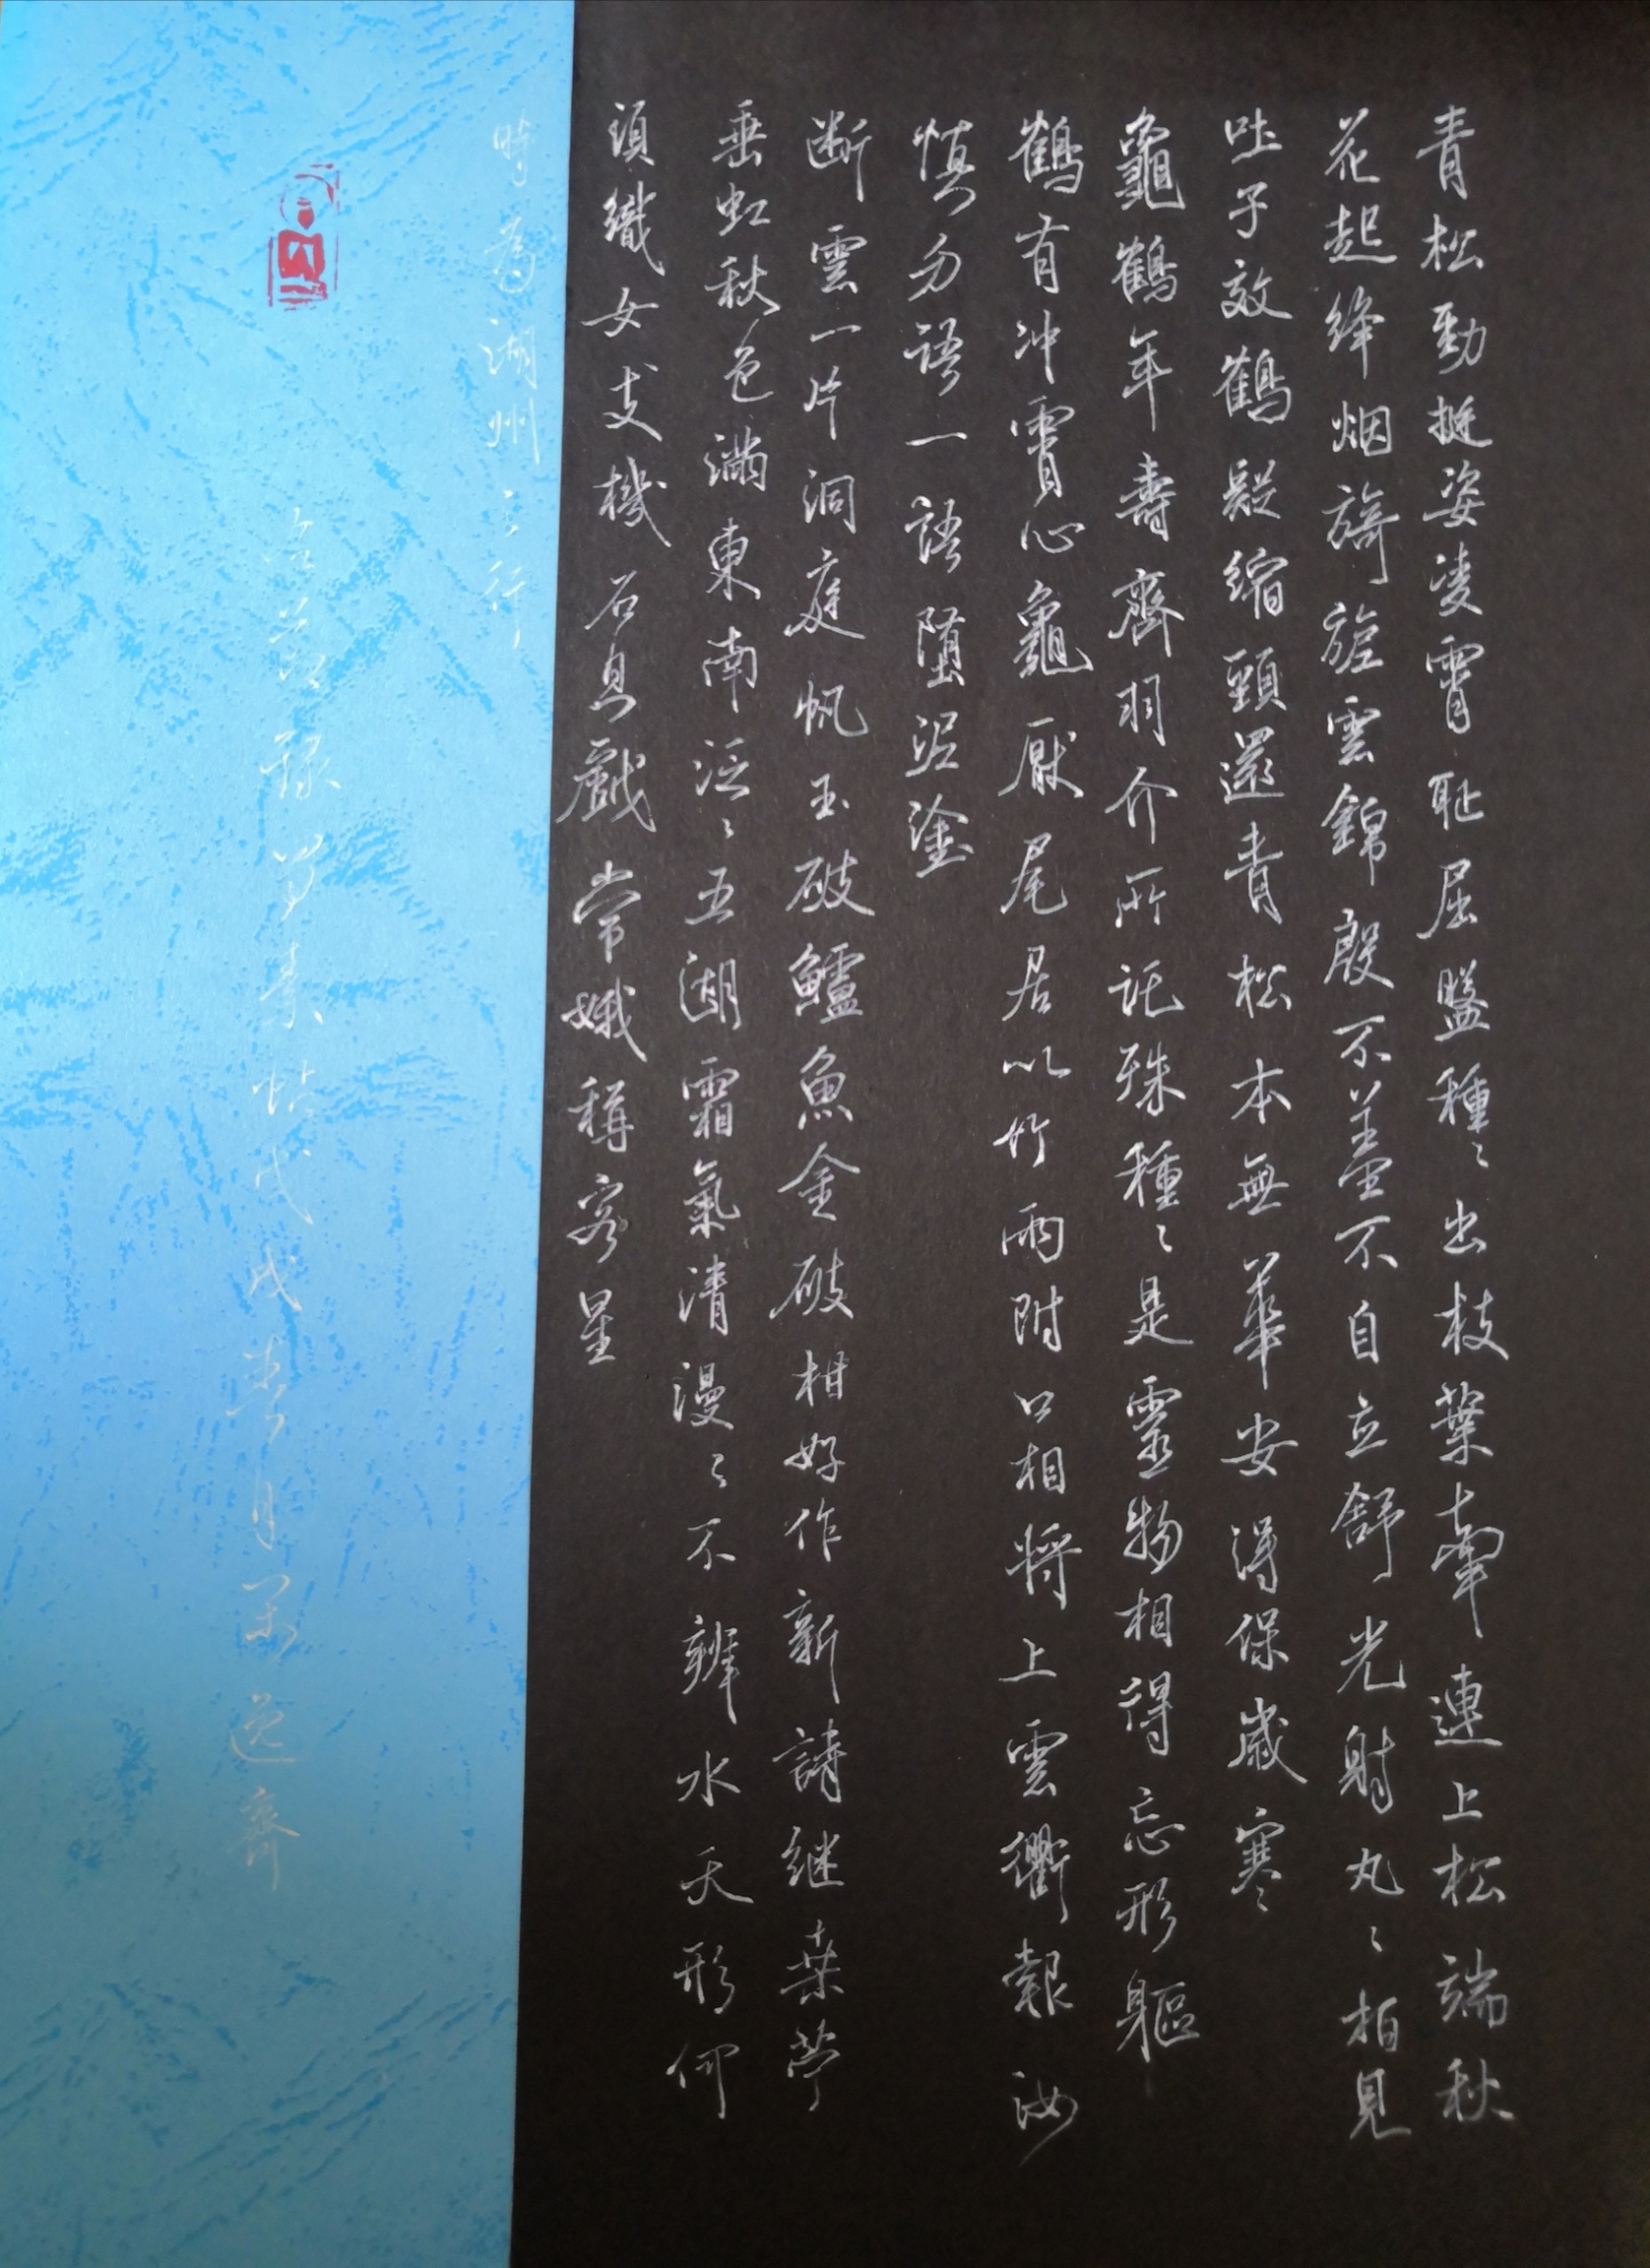 青松勁挺姿凌霄恥屈盤種〻出枝葉牽連上松端秋
花起絳烟旖旎雲錦殷不羞不自立舒光射丸〻柏見
吐子效鶴疑縮頸還青松本無華安得保歲寒
龜鶴年壽齊羽介所託殊種〻是靈物相得忘形軀
鶴有沖霄心龜厭尾居以竹兩附口相將上雲衢報汝
慎勿語一語墮泥塗
断雲一片洞庭帆玉破鱸魚金破柑好作新詩继桑苧
垂虹秋色滿東南泛〻五湖霜氣清漫〻不辨水天形何
須織女支機石且戲常娥稱客星
時為湖州之行
戊
月
逸齋